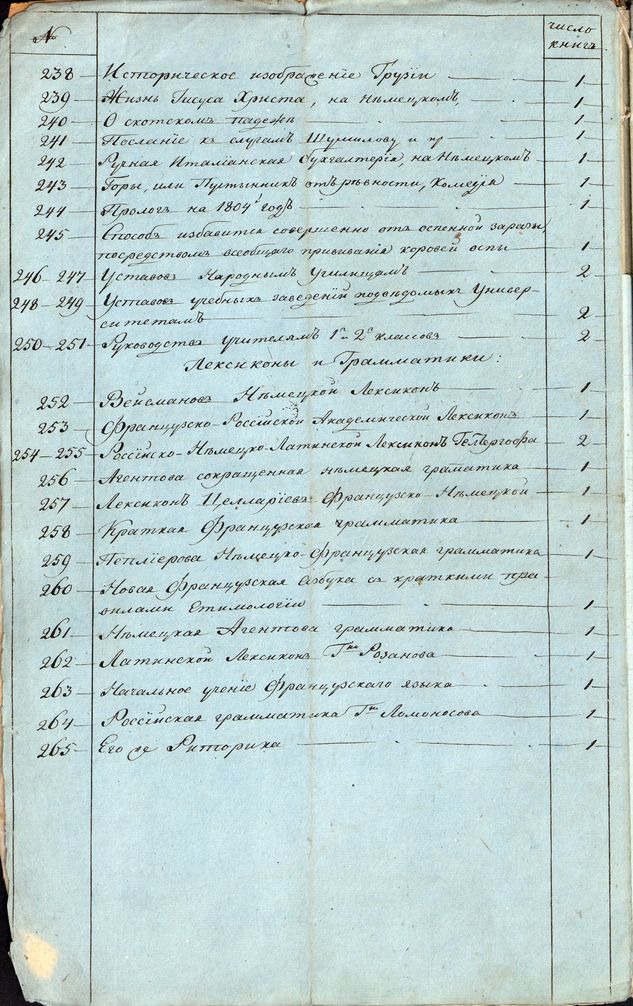 № число
книгъ
238 Историческое изображеніе Грузіи 1
239 Жизнь Іисуса Христа, на Нѣмецкомъ, 1
240 О скотскомъ падежѣ 1
241 Посланіе къ слугамъ Шумилову и пр 1
242 Ручная Италіанская бухгалтерія, на Нѣмецкомъ 1
243 Горы, или Пустынникъ отъ ревности, комедія 1
244 Прологъ на 1804й годъ 1
245 Способъ избавится совершенно отъ оспенной заразы
посредствомъ всеобщаго прививанія коровей оспы 1
246–247 Уставовъ Народнымъ Училищамъ 2
248–249 Уставовъ учебныхъ заведеній подвѣдомыхъ Универ-
ситетамъ 2
250–251 Руководствъ учителямъ 1го и 2го классовъ 2
Лексиконы и Грамматики:
252 Вейсмановъ Нѣмецкой Лексиконъ 1
253 Французско-Россійской Академической Лексиконъ 1
254–255 Россійско-Нѣмецко-Латинской Лексиконъ 2
256 Агентова сокращенная нѣмецкая граматика 1
257 Лексиконъ Целларіевъ Французско-Нѣмецкой 1
258 Краткая Французская грамматика 1
259 Пепліерова Нѣмецко-Французская грамматика 1
260 Новая Французская азбука съ краткими пра-
вилами Етимологіи 1
261 Нѣмецкая Агентова грамматика 1
262 Латинской Лексиконъ Гна Розанова 1
263 Начальное ученіе Французскаго языка 1
264 Россійская грамматика Гна Ломоносова 1
265 Его же Риторика 1